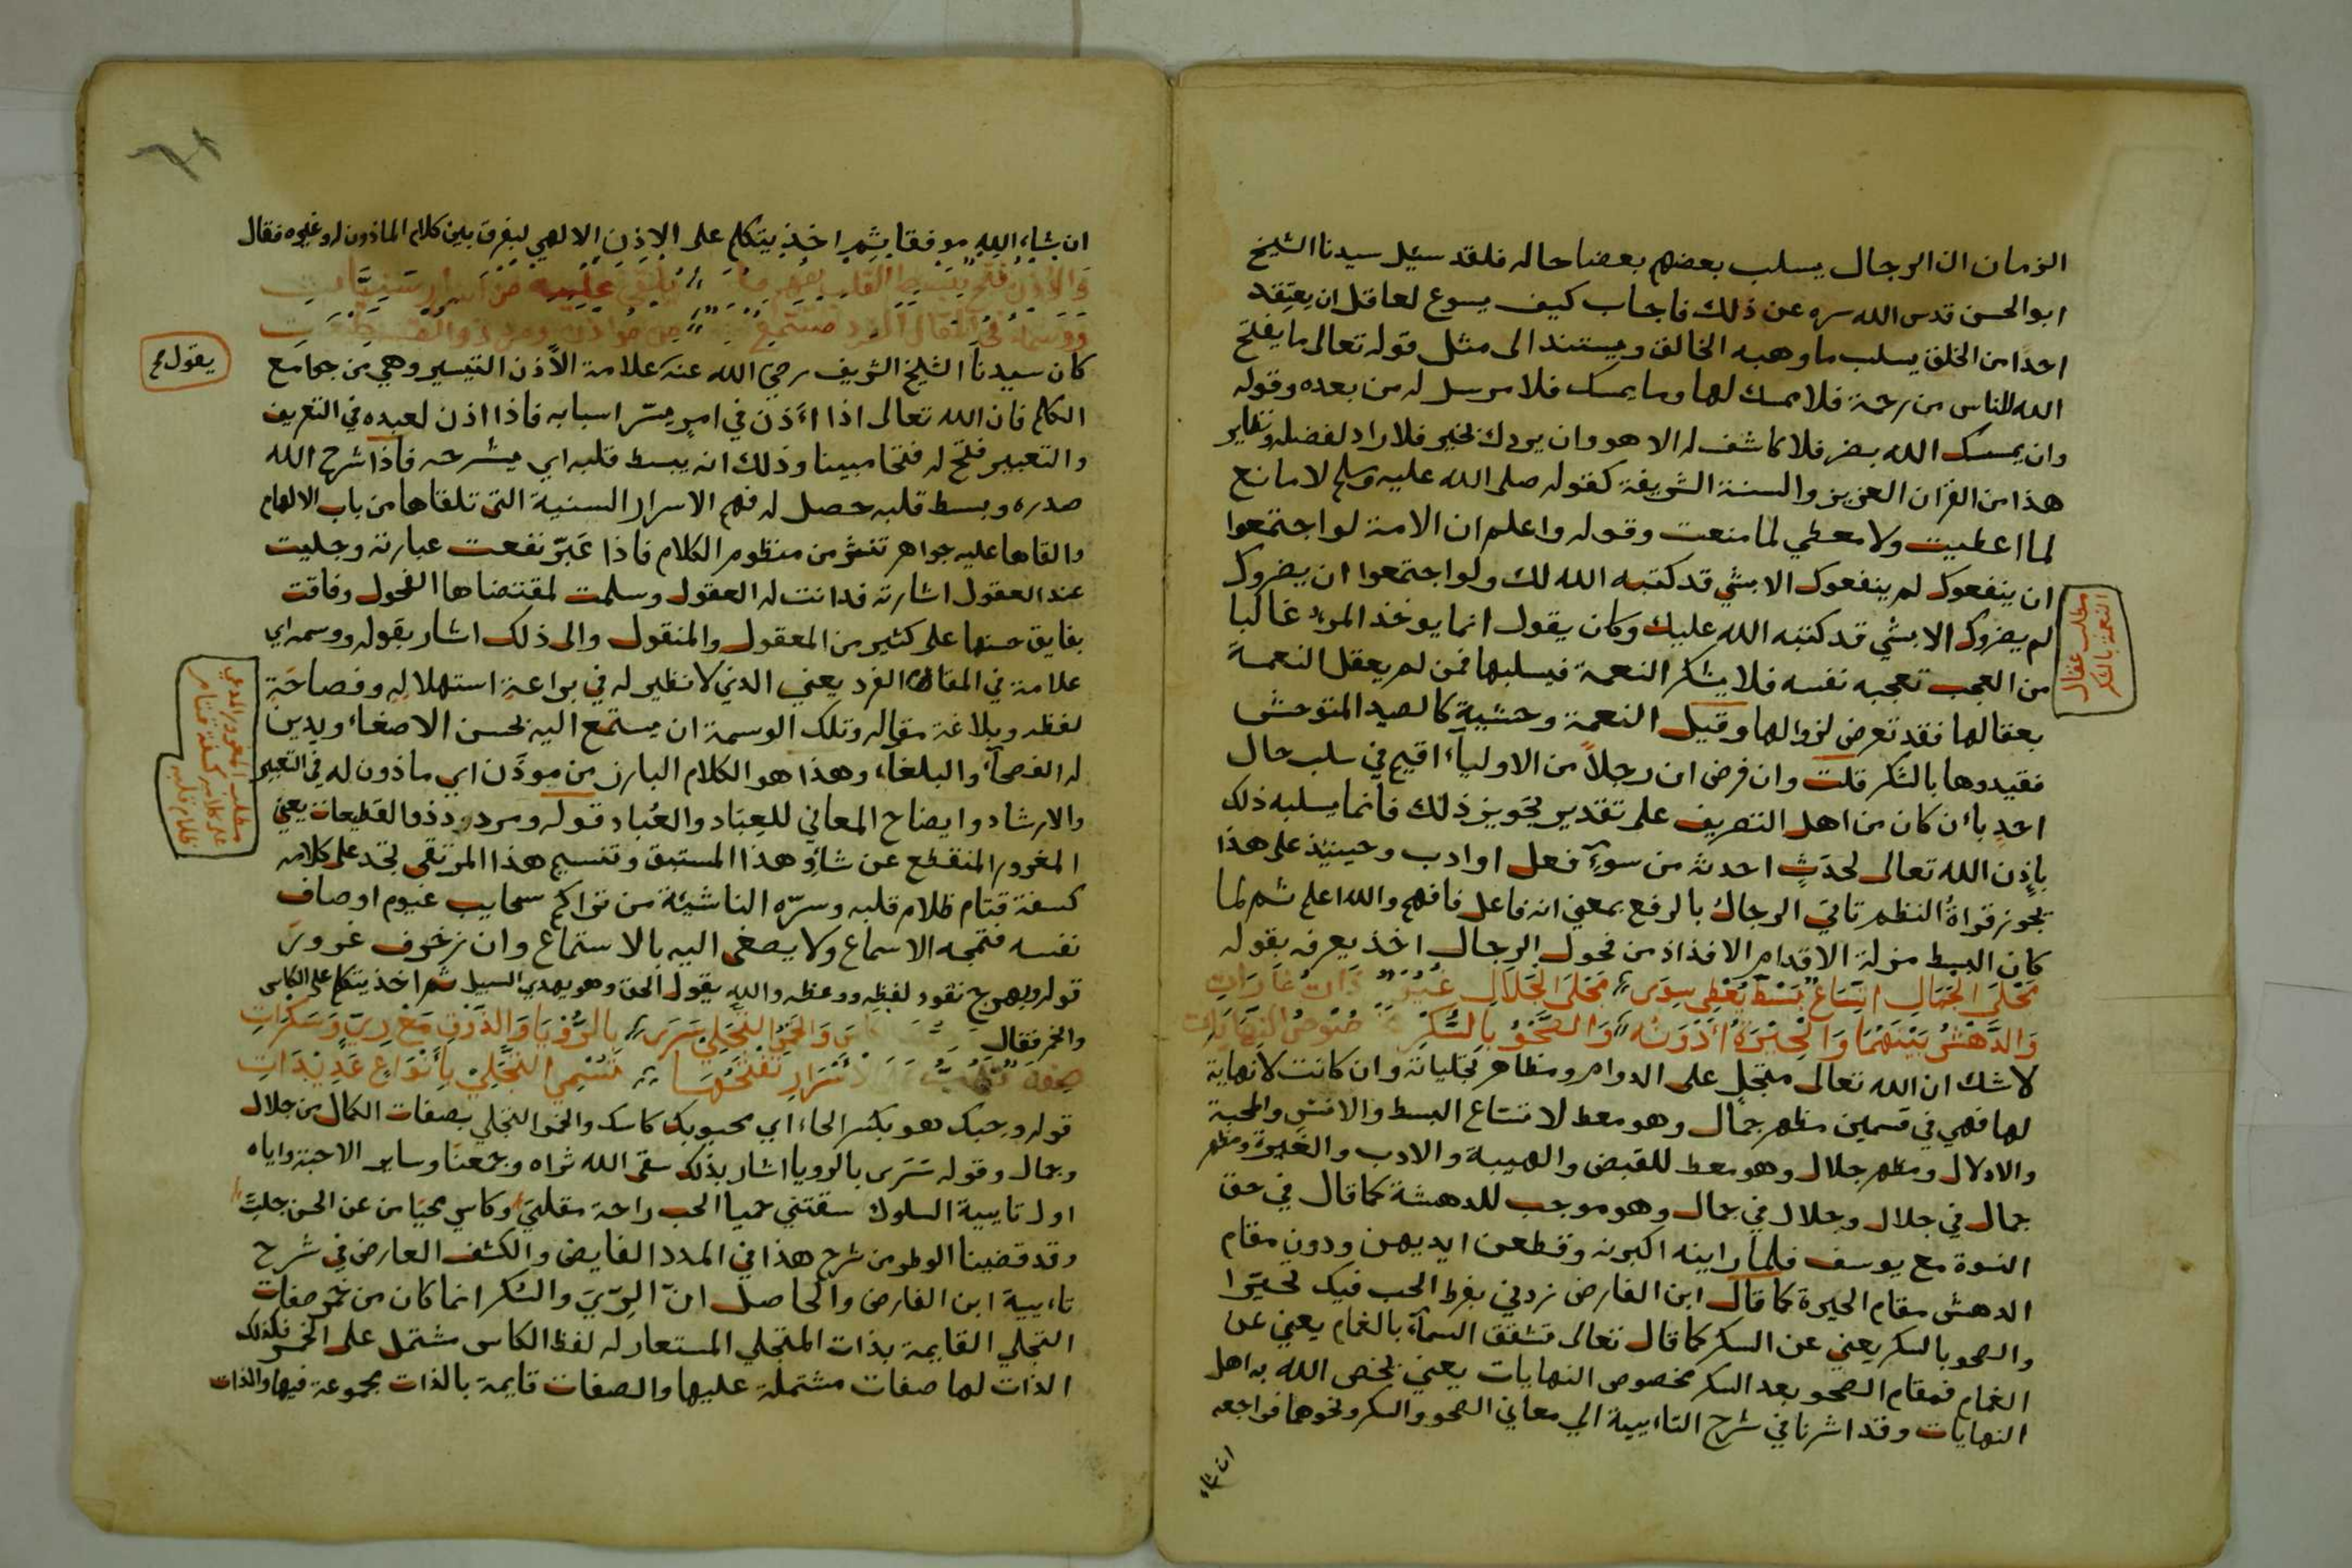 الزمان ان الرجال يسلب بعضهم بعضا حاله فلقد سئل سيدنا الشيخ
ابو الحسن قدس الله سره عن ذلك فاجاب كيف يسوع لعاقل ان يعتقد
احدا من الخلق يسلب ما وهبه الخالق ويستند الى مثل قوله تعالى ما يفتح
الله للناس من رحمة فلا ممسك لها وما يمسك فلا مرسل له من بعده وقوله
وان يمسسك الله بضر فلا كاشف له الا هو وان يردك بخير فلا راد لفضله ونظاير
هذا من القران العزيز والسنة الشريفة كقوله صلى الله عليه وسلم لا مانع
لما اعطيت ولا معطي لما منعت وقوله واعلم ان الامة لو اجتمعوا
ان ينفعوك لم ينفعوك الا بشي قد كتبه الله لك ولو اجتمعوا ان يضروك
لم يضروك الا بشي قد كتبه الله عليك وكان يقول انما يوخذ المرء غالبا
من العجب تعجبه نفسه فلا يشكر النعمة فيسلبها فمن لم يعقل النعمة
بعقالها فقد تعرض لزوالها وقيل النعمة وحشية كالصيد المتوحش
فقيدوها بالشكر قلت وان فرض ان رجلاً من الاولياء اقيم في سلب حال
احدٍ بأن كان من اهل التصريف على تقدير تجويز ذلك فانما يسلبه ذلك
بإذن الله تعالى لحدَثٍ احدثه من سوء فعل او ادب وحينيذ على هذا
تجوز قراة النظم تاتي الرجال بالرفع بمعنى انه فاعل فافهم والله اعلم ثم لما
كان البسط منزلة الاقدام الافذاذ من فحول الرجال اخذ يعرفه بقوله
مَجْلَى الجَمَالِ اتِّسَاعٌ بَسْطٌ يُعْطِي سِوَى مَجْلَى الجَلَالِ غَيُرٌ ذَاتُ غَارَاتِ
وَالدَّهْشُ بَيْنَهُمَا وَالحِيْرَةُ دُونَهُ وَالصَّحْوُ بِالسُّكْرِ خُصُوصُ النِّهَايَاتِ
لا شك ان الله تعالى متجل على الدوام ومظاهر تجلياته وان كانت لا نهاية
لها فهي في قسمين مظهر جمال وهو معط لاتساع البسط والانس والمحبة
والادلال ومظهر جلال وهو معط للقبض والهيبة والادب والغيرة ومظهر
جمال في جلال وجلال في جمال وهو موجب للدهشة كما قال في حق
النسوة مع يوسف فلما راينه اكبرنه وقطعن ايديهن ودون مقام
الدهش مقام الحيرة كما قال ابن الفارض زدني بفرط الحب فيك تحيّرا
والصحو بالسكر يعني عن السكر كما قال تعالى تشقق السمآء بالغمام يعني عن
الغمام فمقام الصحو بعد السكر مخصوص النهايات يعني يخص الله به اهل
النهايات وقد اشرنا في شرح التاءيية الى معاني الصحو والسكر ونحوهما فراجعه
ان شاء
مطلب عقال
النعمة بالشكر
ان شاء الله موفقا ثم اخذ يتكلم على الاذن الالهي ليفرق بين كلام الماذون له وغيره فقال
وَالاِذْنُ فَتْحٌ يَبْسُطُ القَلْبَ يُلْقَى عَلَيْهِ مِنْ اَسْرَارٍ سَنِيَّاتِ
وَوَسْمُهُ فِي المَقَالِ الفَرْدِ مُسْتَمَعٌ مِنْ مُوْذَنٍ وَمِنْ ذُو القَطِيْعَاتِ
كان سيدنا الشيخ الشريف رضي الله عنه علامة الاذن التيسير وهي من جوامع
الكلم فان الله تعالى اذا اَذن في امرٍ يسّر اسبابه فاذا اذن لعبده في التعريف
والتعبير فتح له فتحا مبينا وذلك انه يبسط قلبه اي يشرحه فاذا شرح الله
صدره وبسط قلبه حصل له فهم الاسرار السنية التي تلقاها من باب الالهام
والقاها عليه جواهر تنثر من منظوم الكلام فاذا عَبَّر نفعت عبارته وجليت
عند العقول اشارته فدانت له العقول وسلمت لمقتضاها الفحول وفاقت
بفايق حسنها على كثير من المعقول والمنقول والى ذلك اشار بقوله ووسمه اي
علامة في المقال الفرد يعني الذي لا نظير له في براعة استهلاله وفصاحَة
لفظه وبلاغة مقاله وتلك الوسمة ان يستمع اليه بحسن الاصغاء ويدين
له الفصحآء والبلغاء وهذا هو الكلام البارز من موذَن اي ماذون له في التعبير
والارشاد وايضاح المعاني للعِبَاد والعُباد قوله ومن ردد ذو القطيعات يعني
المغرور المنقطع عن شأو هذا المستبق وتنسيم هذا المرتقى تجد على كلامه
كسفة قتام ظلام قلبه وسرّه الناشيئة من تراكم سحايب غيوم اوصاف
نفسه فتمجه الاسماع ولا يصغى اليه بالاستماع وان زخرف غرور
قوله وبهرج نقود لفظه ووعظه والله يقول الحق وهو يهدي السبيل ثم اخذ يتكلم على الكاس
والخمر فقال وَالخَمْرُ التَّجَلِّي سَرَى بِالرُّؤْيَا وَالذَّوْقِ مَعْ رِيٍّ وَسَكْرَاتِ
الأَسْرَارِ تَفْتَحُهَا تَسْمِي التَّجَلِّيْ بِأَنْوَاعٍ عَدِيْدَاتِ
قوله وحِبك هو بكسر الحاء اي محبوبك كاسك والخمر التجلي بصفات الكمال من جلال
وجمال وقوله سَرَى بالرويا اشار بذلك سقى الله ثراه وجمعنا وساير الاحبة واياه
اول تاييه السلوك سقتني حميا الحب راحة مقلتي وكاسي محيا من عن الحسن جلت
وقد قضينا الوطر من شرح هذا في المدد الفايض والكشف العارض في شرح
تاءيية ابن الفارض والحاصل انّ الرِّيَّ والسكر انما كان من خمر صفات
التجلي القايمة بذات المتجلي المستعار له لفظ الكاس مشتمل على الخمر فلذلك
الذات لها صفات مشتملة عليها والصفات قايمة بالذات مجموعة فيها والذات
يقول صح
مطلب المغرور المدعي
على كلامه كسفة قتام
ظلام قلبه